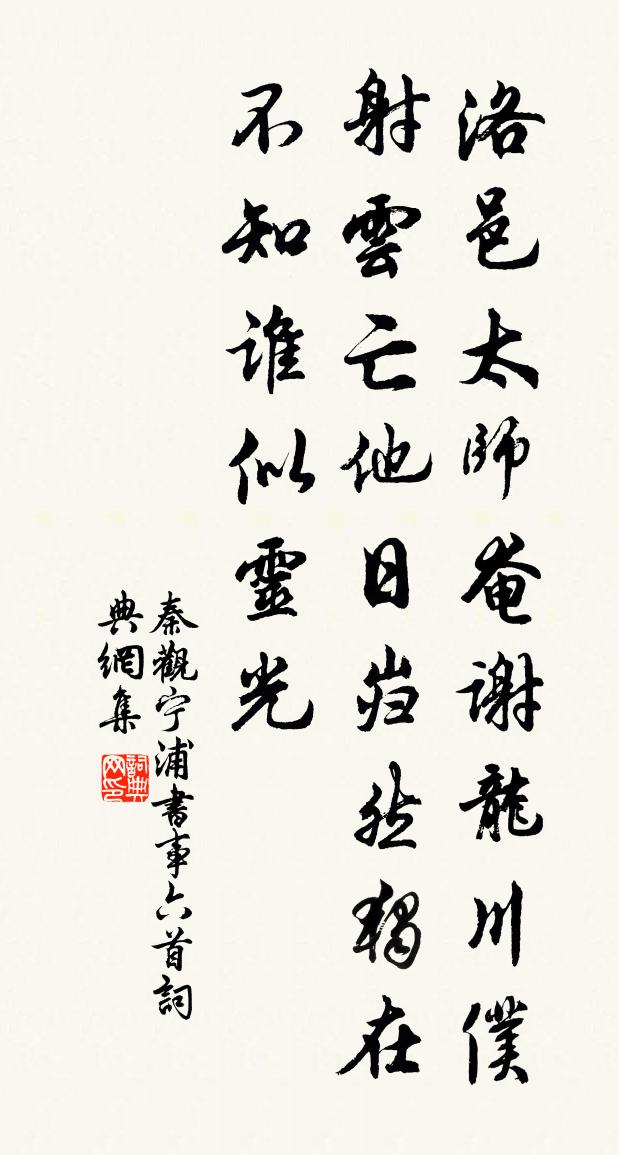 洛邑太師奄謝龍川僕
射雲亡他日岿然獨在
不知誰似靈光
秦觀宁浦書事六首詞
典網集
詞典
网印